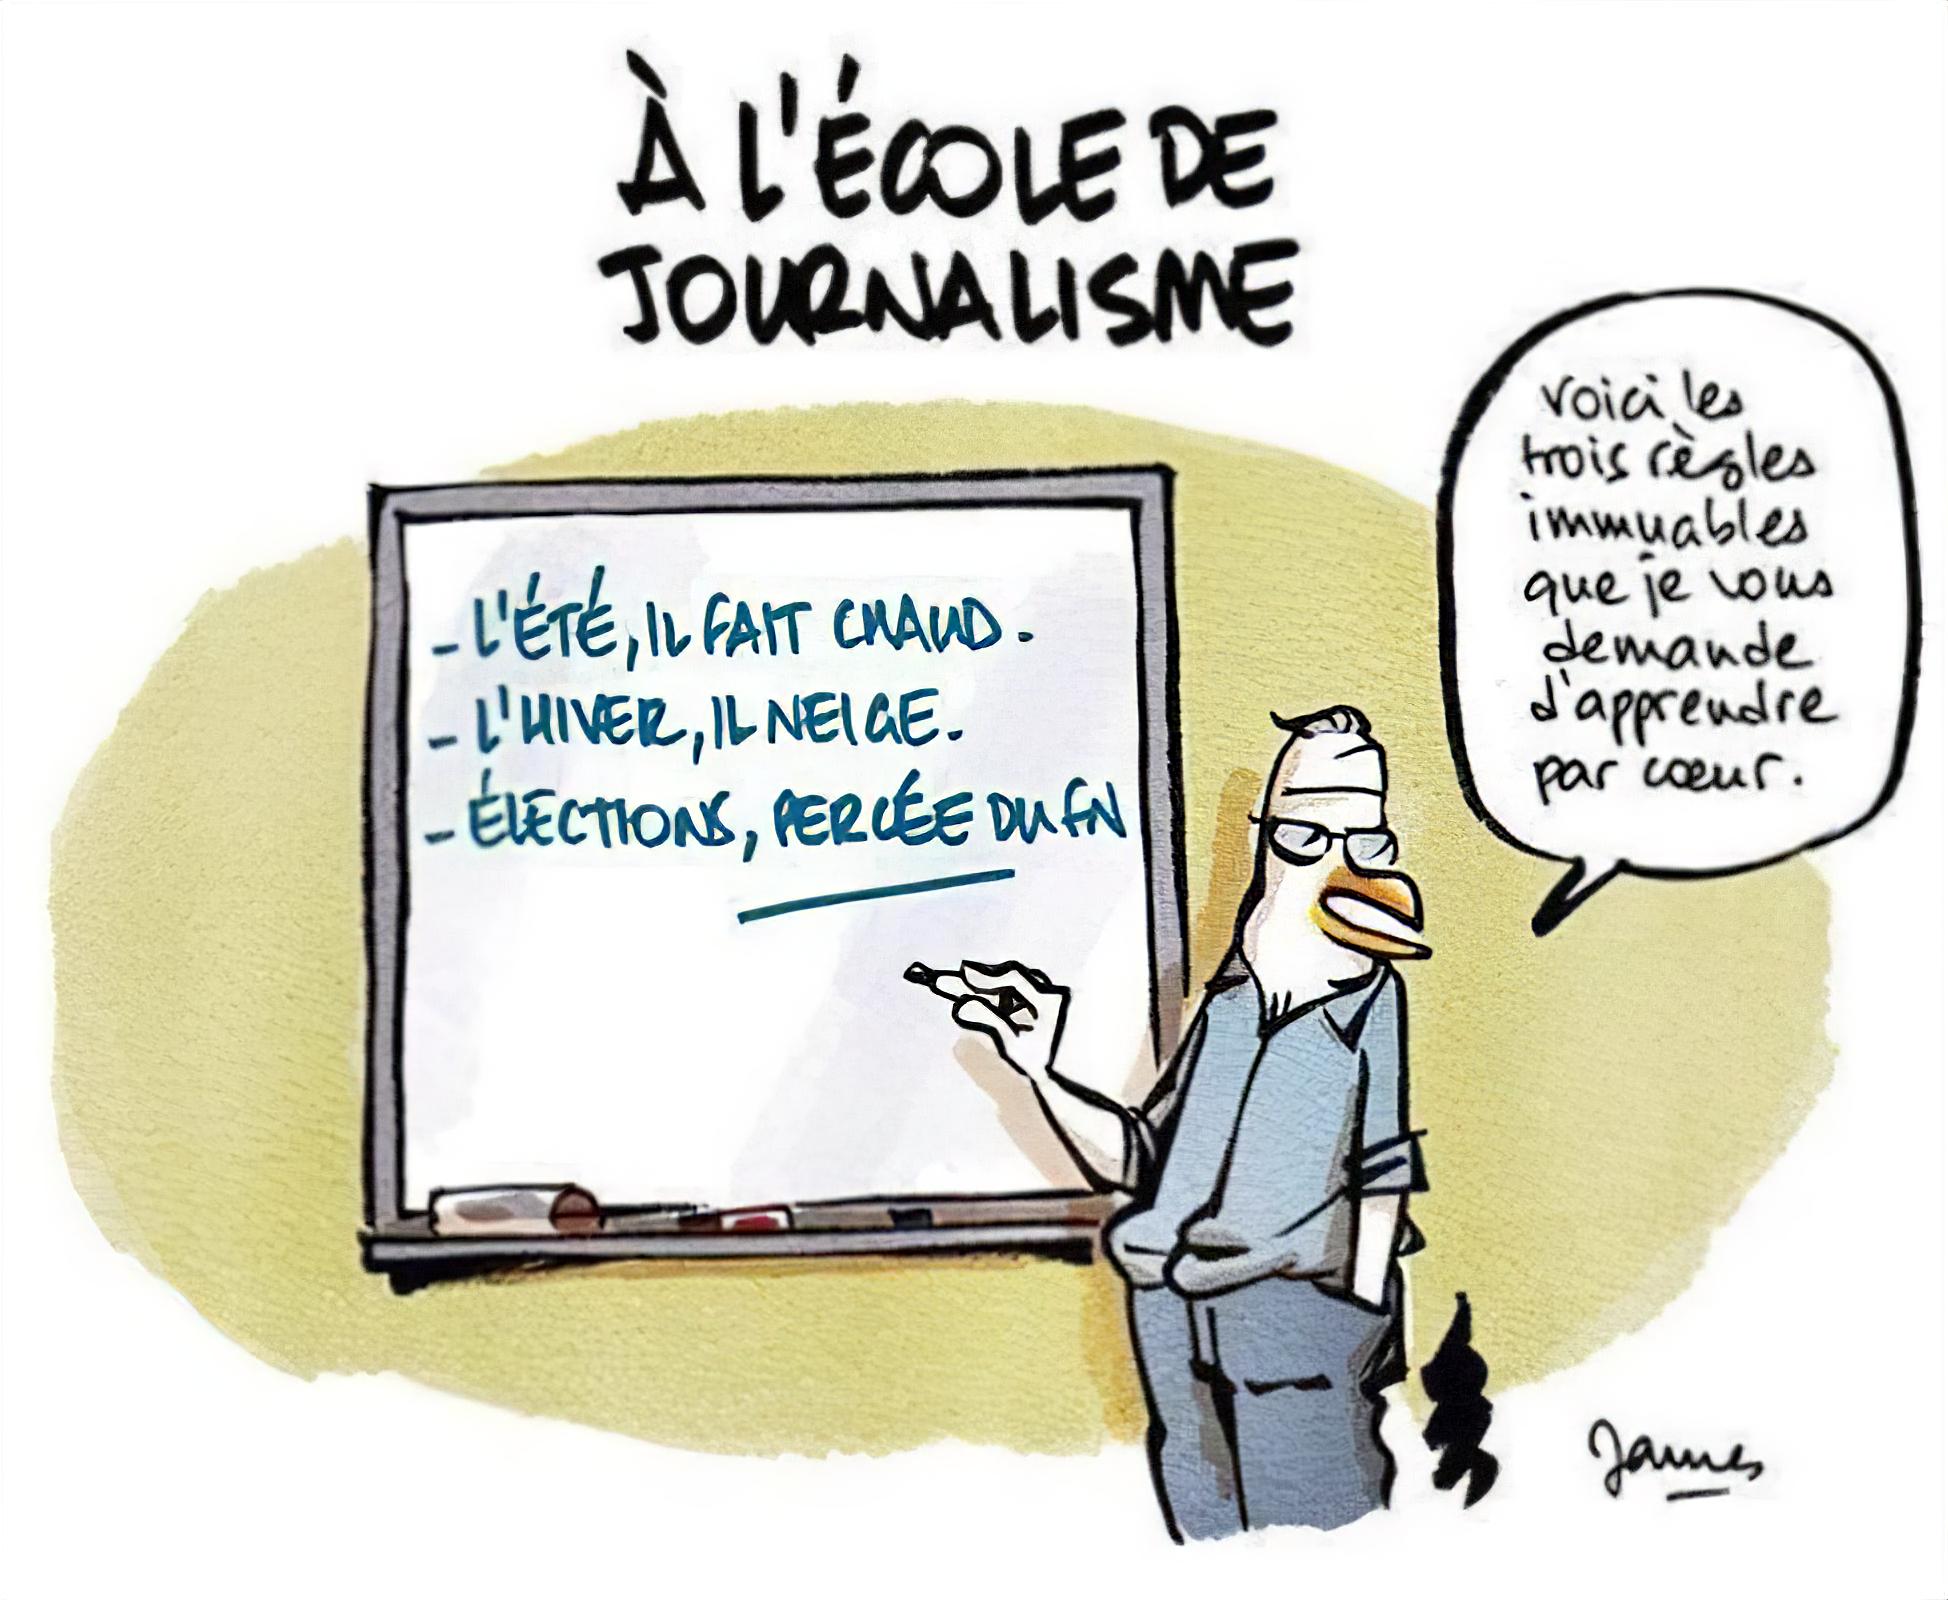 À L'ÉCOLE DE
JOURNALISME
Voici les
trois règles
immuables
que je vous
demande
d'apprendre
par cœur.
- L'ÉTÉ, IL FAIT CHAUD.
- L'HIVER, IL NEIGE.
- ÉLECTIONS, PERCÉE DU FN
James